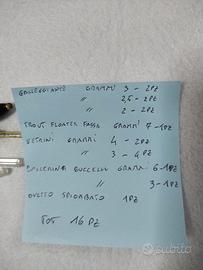 GALLEGGIANTE GRAMMI 3 - 2PZ
" 2,5 - 2PZ
" 2 - 2PZ
TROUT FLOATER FASSA GRAMMI 7 - 1PZ
VETRINI GRAMMI 4 - 2PZ
" 3 - 4PZ
BOMBARDA BUCCELLI GRAMMI 6 - 1PZ
" 3 - 1PZ
OVETTO SPIOMBATO 1PZ
TOT 16 PZ
Subito